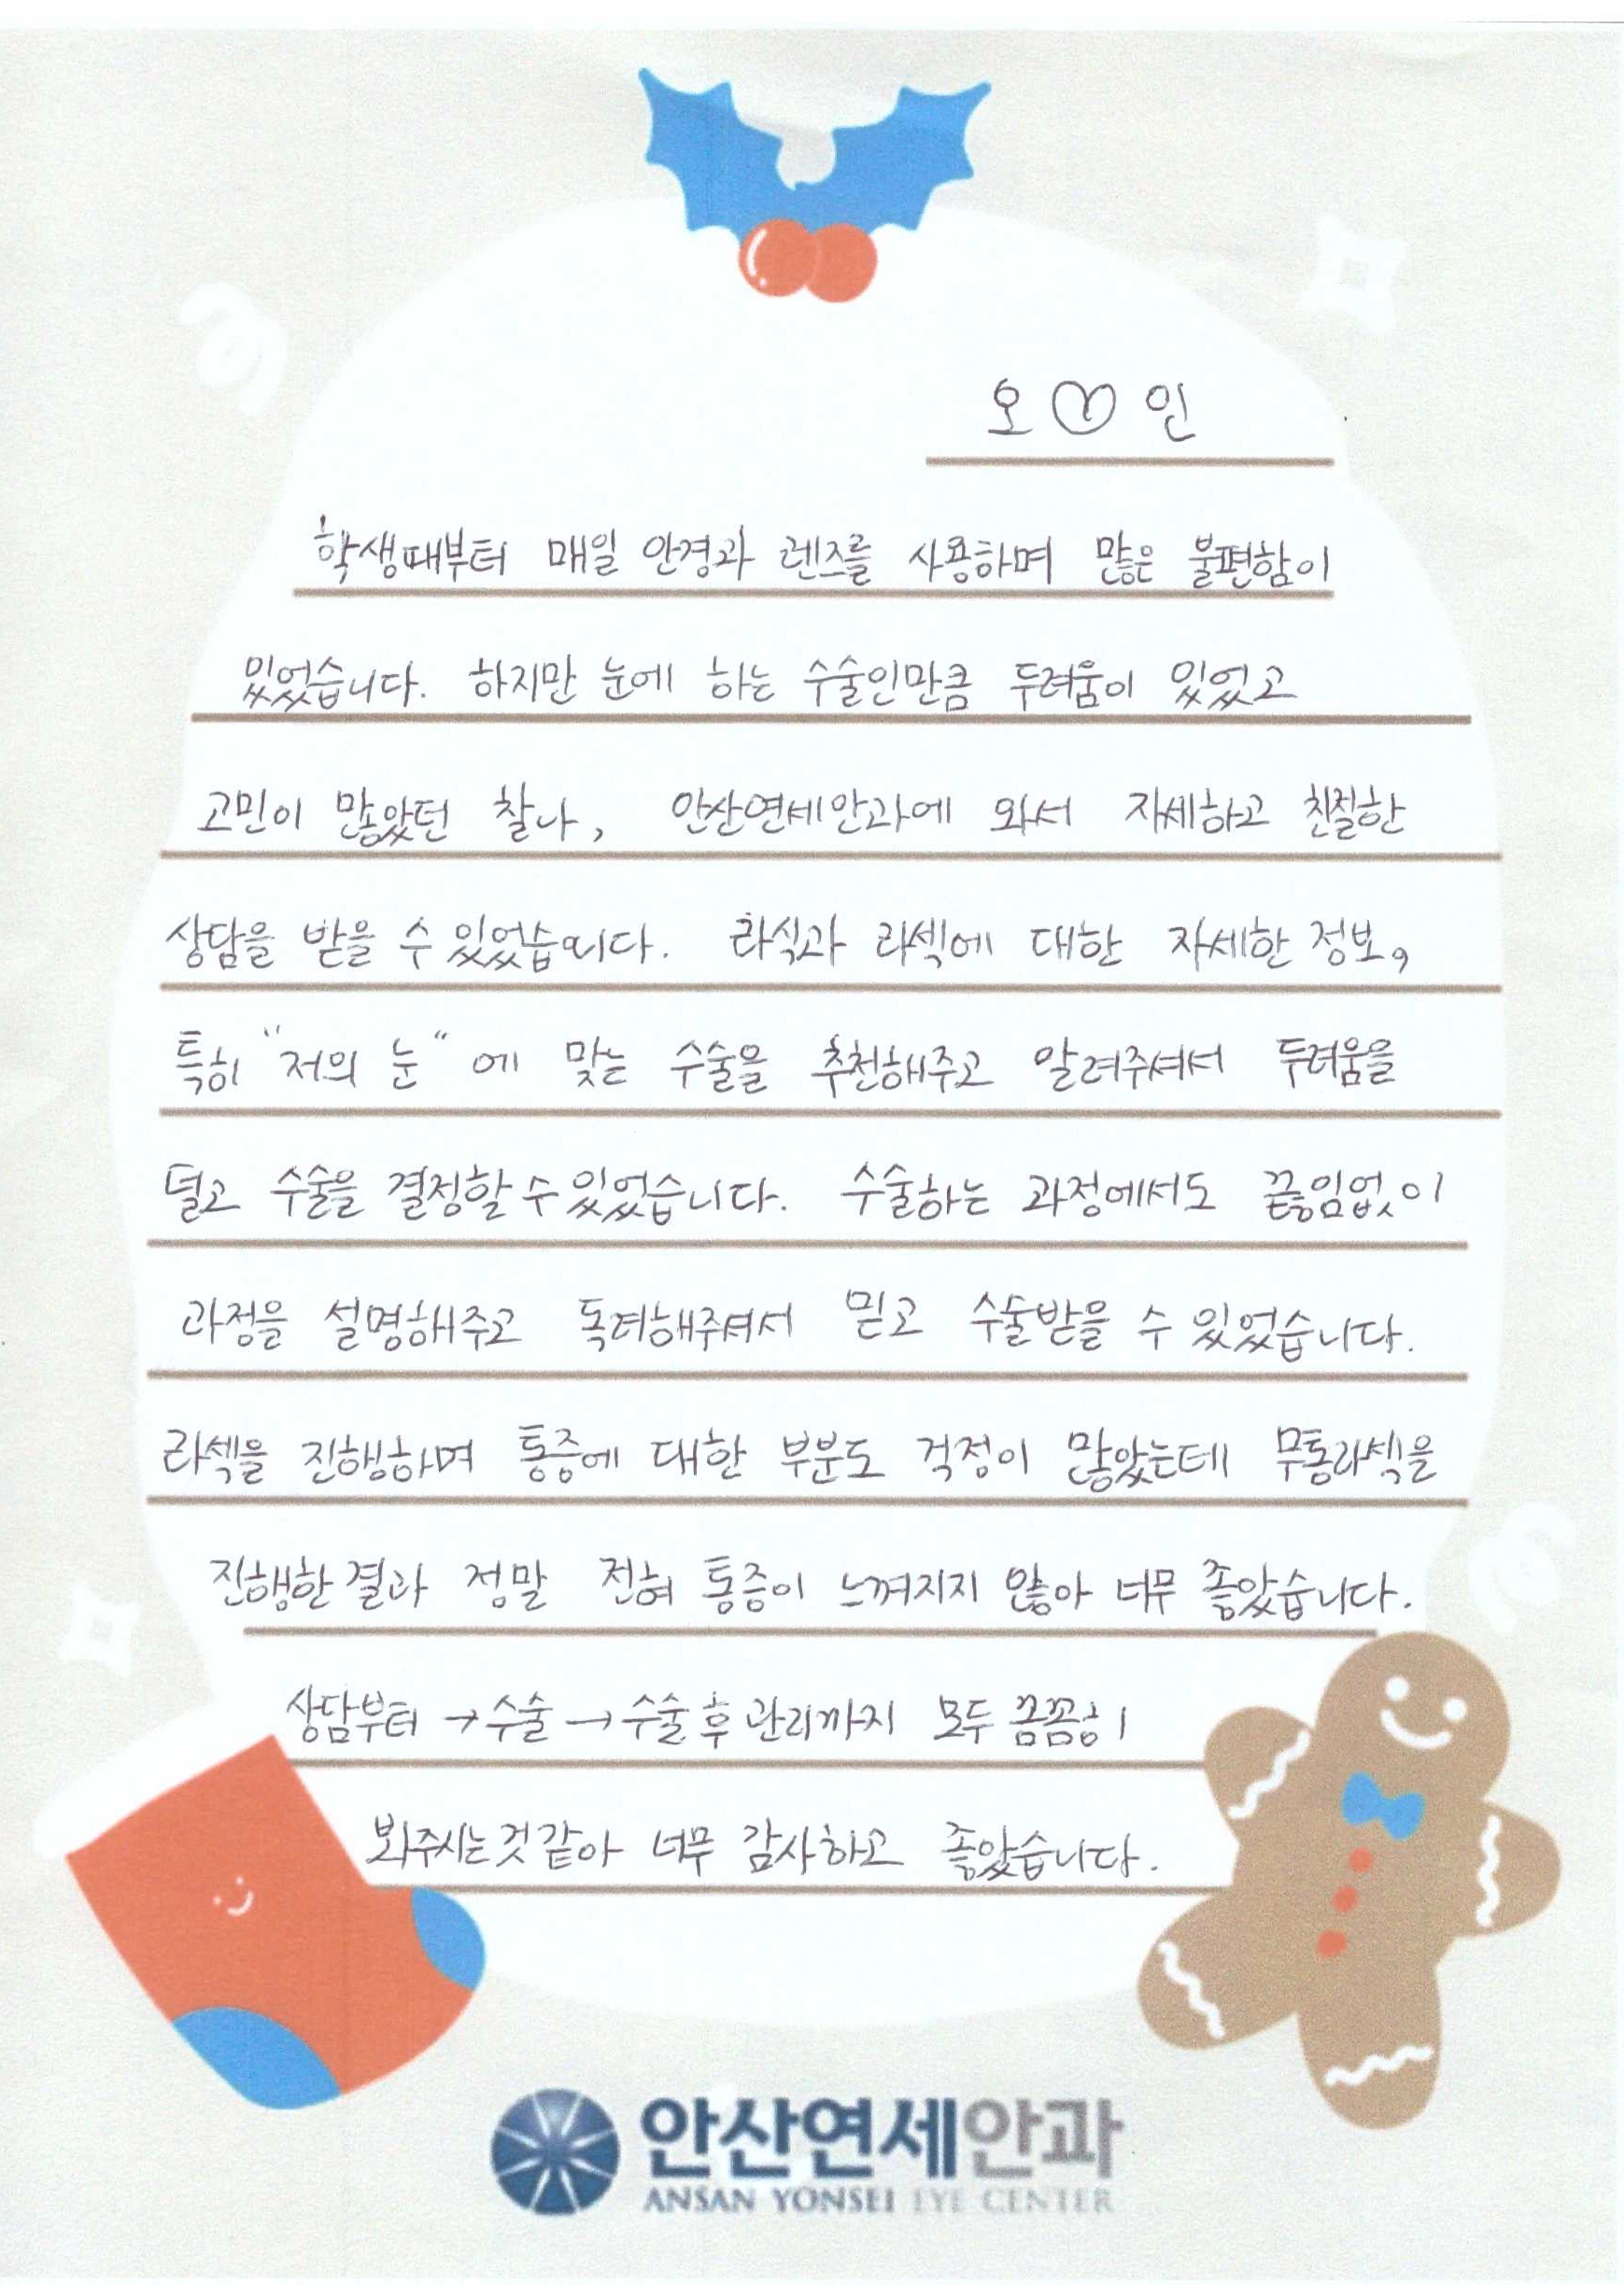 오♡인
학생때부터 매일 안경과 렌즈를 사용하며 많은 불편함이
있었습니다. 하지만 눈에 하는 수술인만큼 두려움이 있었고
고민이 많았던 찰나, 안산연세안과에 와서 자세하고 친절한
상담을 받을 수 있었습니다. 라식과 라섹에 대한 자세한 정보,
특히 "저의 눈" 에 맞는 수술을 추천해주고 알려주셔서 두려움을
덜고 수술을 결정할 수 있었습니다. 수술하는 과정에서도 끊임없이
과정을 설명해주고 독려해주셔서 믿고 수술받을 수 있었습니다.
라섹을 진행하며 통증에 대한 부분도 걱정이 많았는데 무통라섹을
진행한 결과 정말 전혀 통증이 느껴지지 않아 너무 좋았습니다.
상담부터 → 수술 → 수술 후 관리까지 모두 꼼꼼히
봐주시는것 같아 너무 감사하고 좋았습니다.
안산연세안과
ANSAN YONSEI EYE CENTER